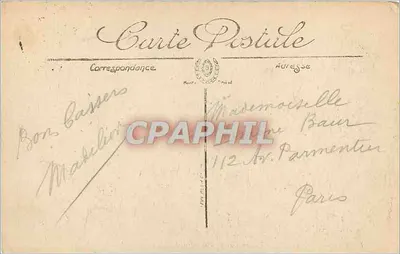 Carte Postale
Correspondance
Adresse
Bons Baisers
Madeleine
Mademoiselle
Baur
112 Av. Parmentier
Paris
CPAPHIL